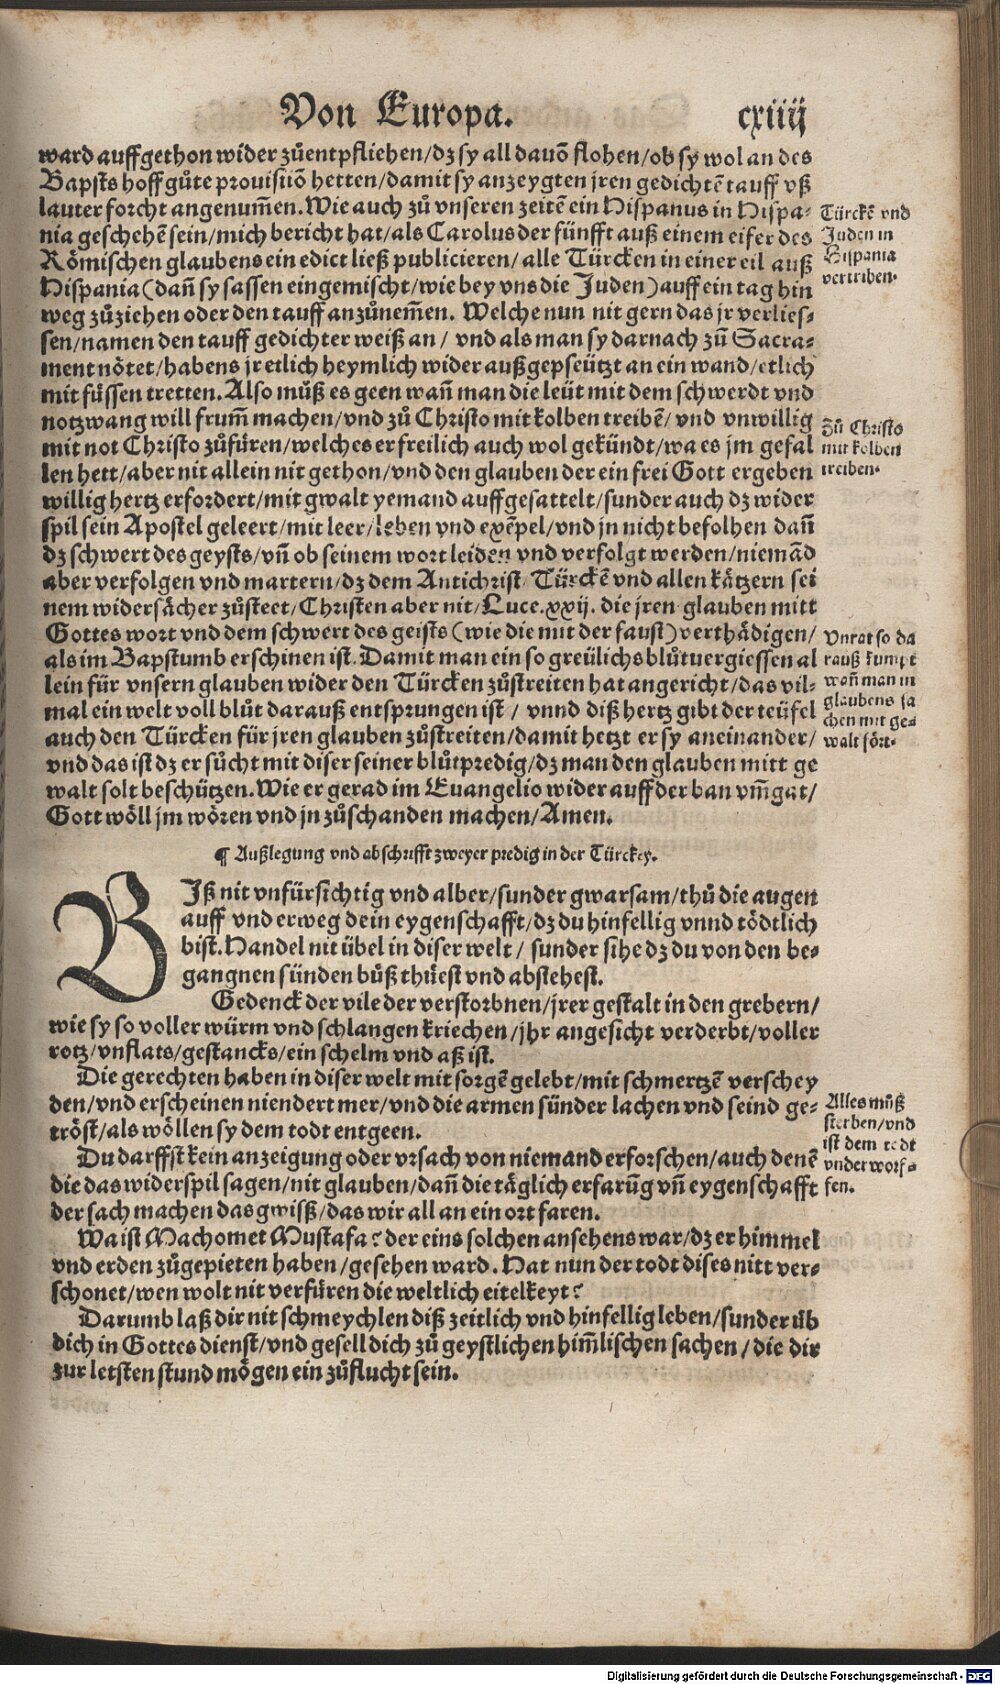 Von Europa. cxiiij
ward auffgethon wider zůentpfliehen/dz sy all davõ flohen/ob sy wol an des
Bapsts hoff gůte prouisiiõ hetten/damit sy anzeygten jren gedichtẽ tauff vß
lauter forcht angenum̃en. Wie auch zů vnseren zeitẽ ein Hispanus in Hispa-
nia geschehẽ sein/mich bericht hat/als Carolus der fünfft auß einem eifer des
Römischen glaubens ein edict ließ publicieren/alle Türcken in einer eil auß
Hispania (dañ sy sassen eingemischt/wie bey vns die Juden) auff ein tag hin
weg zůziehen oder den tauff anzůnem̃en. Welche nun nit gern das jr verlies-
sen/namen den tauff gedichter weiß an/ vnd als man sy darnach zů Sacra-
ment nötet/habens jr etlich heymlich wider außgepseützt an ein wand/etlich
mit füssen tretten. Also můß es geen wañ man die leüt mit dem schwerdt vnd
notzwang will frum̃ machen/vnd zů Christo mit kolben treibẽ/vnd vnwillig
mit not Christo zůfüren/welches er freilich auch wol gekündt/wa es jm gefal
len hett/aber nit allein nit gethon/vnd den glauben der ein frei Gott ergeben
willig hertz erfordert/mit gwalt yemand auffgesattelt/sunder auch dz wider
spil sein Apostel geleert/mit leer/leben vnd exẽpel/vnd jn nicht befolhen dañ
dz schwert des geysts/vñ ob seinem wort leiden vnd verfolgt werden/niemãd
aber verfolgen vnd martern/dz dem Antichrist/Türckẽ vnd allen kätzern sei
nem widersächer zůsteet/Christen aber nit/Luce.xxij. die jren glauben mitt
Gottes wort vnd dem schwert des geists (wie die mit der faust) verthädigen/
als im Bapstumb erschinen ist. Damit man ein so greülichs blůtuergiessen al
lein für vnsern glauben wider den Türcken zůstreiten hat angericht/das vil-
mal ein welt voll blůt darauß entsprungen ist/ vnnd diß hertz gibt der teüfel
auch den Türcken für jren glauben zůstreiten/damit hetzt er sy aneinander/
vnd das ist dz er sůcht mit diser seiner blůtpredig/dz man den glauben mitt ge
walt solt beschützen. Wie er gerad im Euangelio wider auff der ban vm̃gat/
Gott wöll jm wören vnd jn zůschanden machen/Amen.
Türckẽ vnd
Juden in
Hispania
vertriben.
Zů Christo
mit kolben
treiben.
Vnrat so da
rauß kumpt
wañ man in
glaubens sa
chen mit ge-
walt fört.
¶ Außlegung vnd abschrifft zweyer predig in der Türckey.
BIß nit vnfürsichtig vnd alber/sunder gwarsam/thů die augen
auff vnd erweg dein eygenschafft/dz du hinfellig vnnd tödtlich
bist. Handel nit übel in diser welt/ sunder sihe dz du von den be-
gangnen sünden bůß thüest vnd abstehest.
Gedenck der vile der verstorbnen/jrer gestalt in den grebern/
wie sy so voller würm vnd schlangen kriechen/jhr angesicht verderbt/voller
rotz/vnflats/gestancks/ein schelm vnd aß ist.
Die gerechten haben in diser welt mit sorgẽ gelebt/mit schmertzẽ verschey
den/vnd erscheinen niendert mer/vnd die armen sünder lachen vnd seind ge-
tröst/als wöllen sy dem todt entgeen.
Du darffst kein anzeigung oder vrsach von niemand erforschen/auch denẽ
die das widerspil sagen/nit glauben/dañ die täglich erfarũg vñ eygenschafft
der sach machen das gwisß/das wir all an ein ort faren.
Wa ist Machomet Mustafa? der eins solchen ansehens war/dz er himmel
vnd erden zůgepieten haben/gesehen ward. Hat nun der todt dises nitt ver-
schonet/wen wolt nit verfüren die weltlich eitelkeyt?
Darumb laß dir nit schmeychlen diß zeitlich vnd hinfellig leben/sunder üb
dich in Gottes dienst/vnd gesell dich zů geystlichen him̃lischen sachen/die dir
zur letsten stund mögen ein zůflucht sein.
Alles můß
sterben/vnd
ist dem todt
vnderworf-
fen.
Digitalisierung gefördert durch die Deutsche Forschungsgemeinschaft - DFG